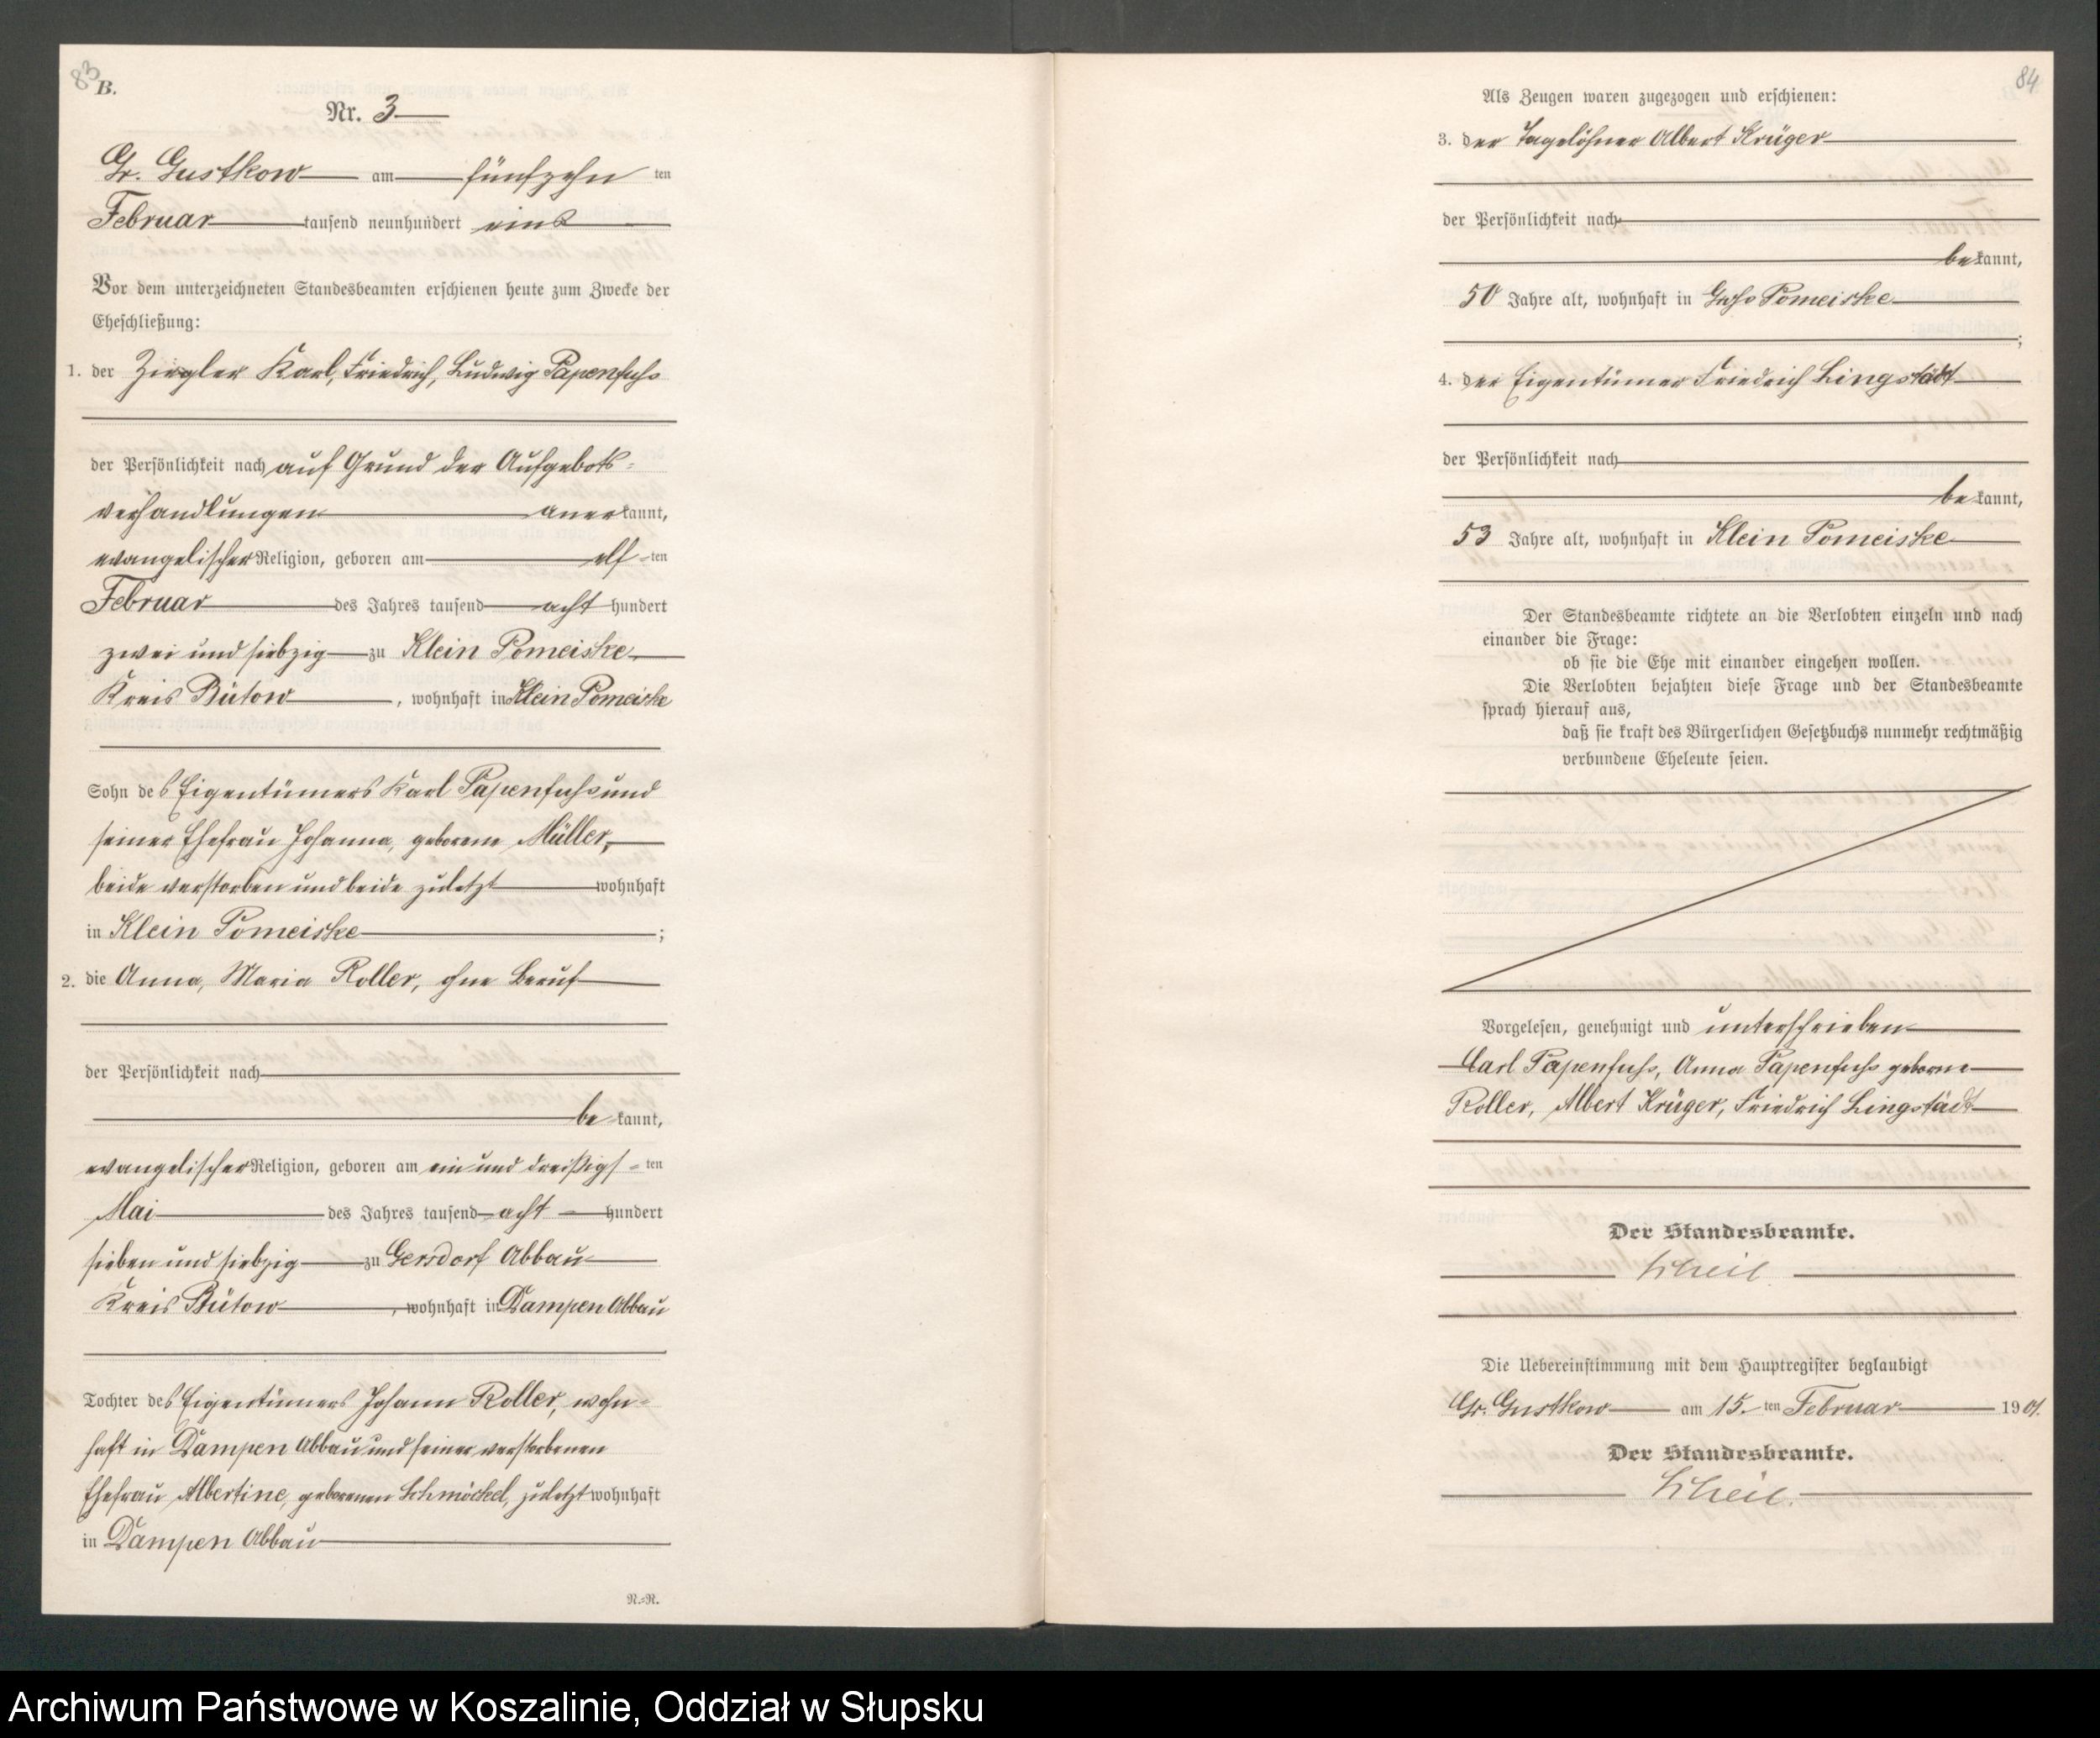 83
B.
Nr. 3
Gr. Gustkow am fünfzehn ten
Februar tausend neunhundert eins
Vor dem unterzeichneten Standesbeamten erschienen heute zum Zwecke der
Eheschließung:
1. der Ziegler Karl, Friedrich, Ludwig Papenfuhs
der Persönlichkeit nach auf Grund der Aufgebots-
verhandlungen anerkannt,
evangelischer Religion, geboren am elf ten
Februar des Jahres tausend acht hundert
zwei und siebzig zu Klein Pomeiske
Kreis Bütow, wohnhaft in Klein Pomeiske
Sohn des Eigentümers Karl Papenfuhs und
seiner Ehefrau Johanna, geborene Müller,
beide verstorben und beide zuletzt wohnhaft
in Klein Pomeiske;
2. die Anna, Maria Roller, ohne Beruf
der Persönlichkeit nach
be kannt,
evangelischer Religion, geboren am ein und dreißigs-ten
Mai des Jahres tausend acht hundert
sieben und siebzig zu Gersdorf Abbau
Kreis Bütow, wohnhaft in Dampen Abbau
Tochter des Eigentümers Johann Roller, wohn-
haft in Dampen Abbau und seiner verstorbenen
Ehefrau Albertine, geborenen Schmöckel, zuletzt wohnhaft
in Dampen Abbau
N.=N.
84
Als Zeugen waren zugezogen und erschienen:
3. der Tagelöhner Albert Krüger
der Persönlichkeit nach
be kannt,
50 Jahre alt, wohnhaft in Groß Pomeiske
;
4. der Eigentümer Friedrich Lingstädt
der Persönlichkeit nach
be kannt,
53 Jahre alt, wohnhaft in Klein Pomeiske
Der Standesbeamte richtete an die Verlobten einzeln und nach
einander die Frage:
ob sie die Ehe mit einander eingehen wollen.
Die Verlobten bejahten diese Frage und der Standesbeamte
sprach hierauf aus,
daß sie kraft des Bürgerlichen Gesetzbuchs nunmehr rechtmäßig
verbundene Eheleute seien.
Vorgelesen, genehmigt und unterschrieben
Carl Papenfuhs, Anna Papenfuhs geborne
Roller, Albert Krüger, Friedrich Lingstädt
Der Standesbeamte.
Scheil
Die Uebereinstimmung mit dem Hauptregister beglaubigt
Gr. Gustkow am 15. ten Februar 1901.
Der Standesbeamte.
Scheil.
Archiwum Państwowe w Koszalinie, Oddział w Słupsku